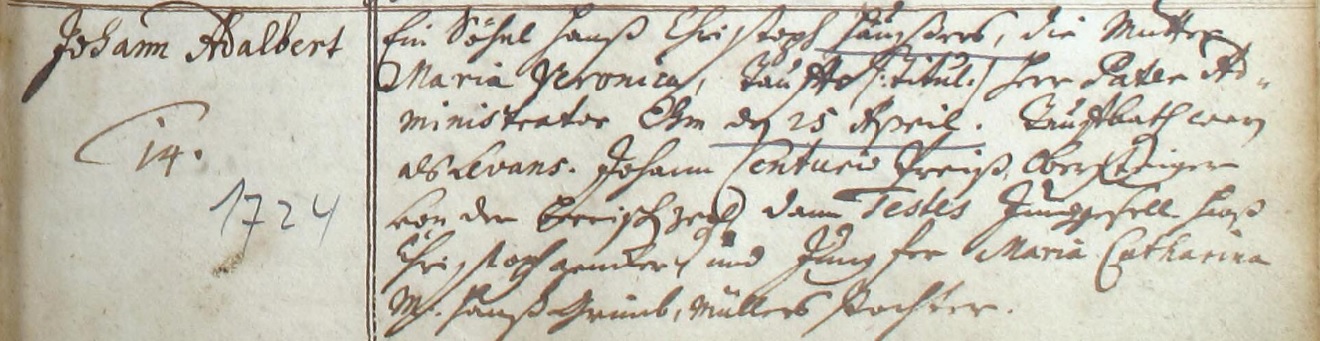 Johann Adalbert
14.
1724
Ein Söhnl Hanß Christoph Häußers, die Mutter
Maria Veronica, Tauffte /:titul:/ Herr Pater Ad-
ministrator Ehm den 25 April. Tauffbath war
als Levans. Johann Centurio Preiß, Obersteiger
von der dann Testes Junggesell Hanß
Christoph und Jungfer Maria Catharina
Hanß Müllers Tochter.